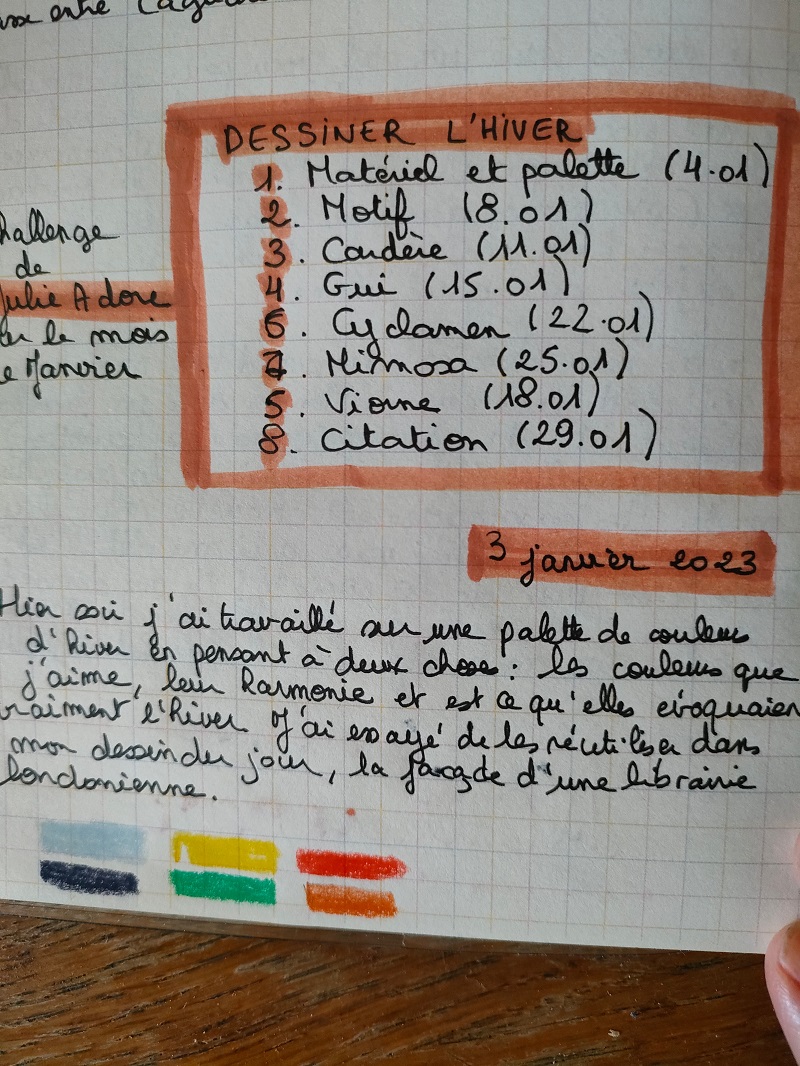 entre
DESSINER L'HIVER
1. Matériel et palette (4.01)
2. Motif (8.01)
3. Cardère (11.01)
4. Gui (15.01)
6. Cyclamen (22.01)
7. Mimosa (25.01)
5. Viorne (18.01)
8. Citation (29.01)
hallenge
de
Julie Adore
le mois
e Janvier
3 janvier 2023
Hier soir j'ai travaillé sur une palette de couleurs
d'hiver en pensant à deux choses : les couleurs que
j'aime, leur harmonie et est ce qu'elles évoquaien
vraiment l'hiver J'ai essayé de les réutiliser dans
mon dessin du jour, la façade d'une librairie
londonienne.